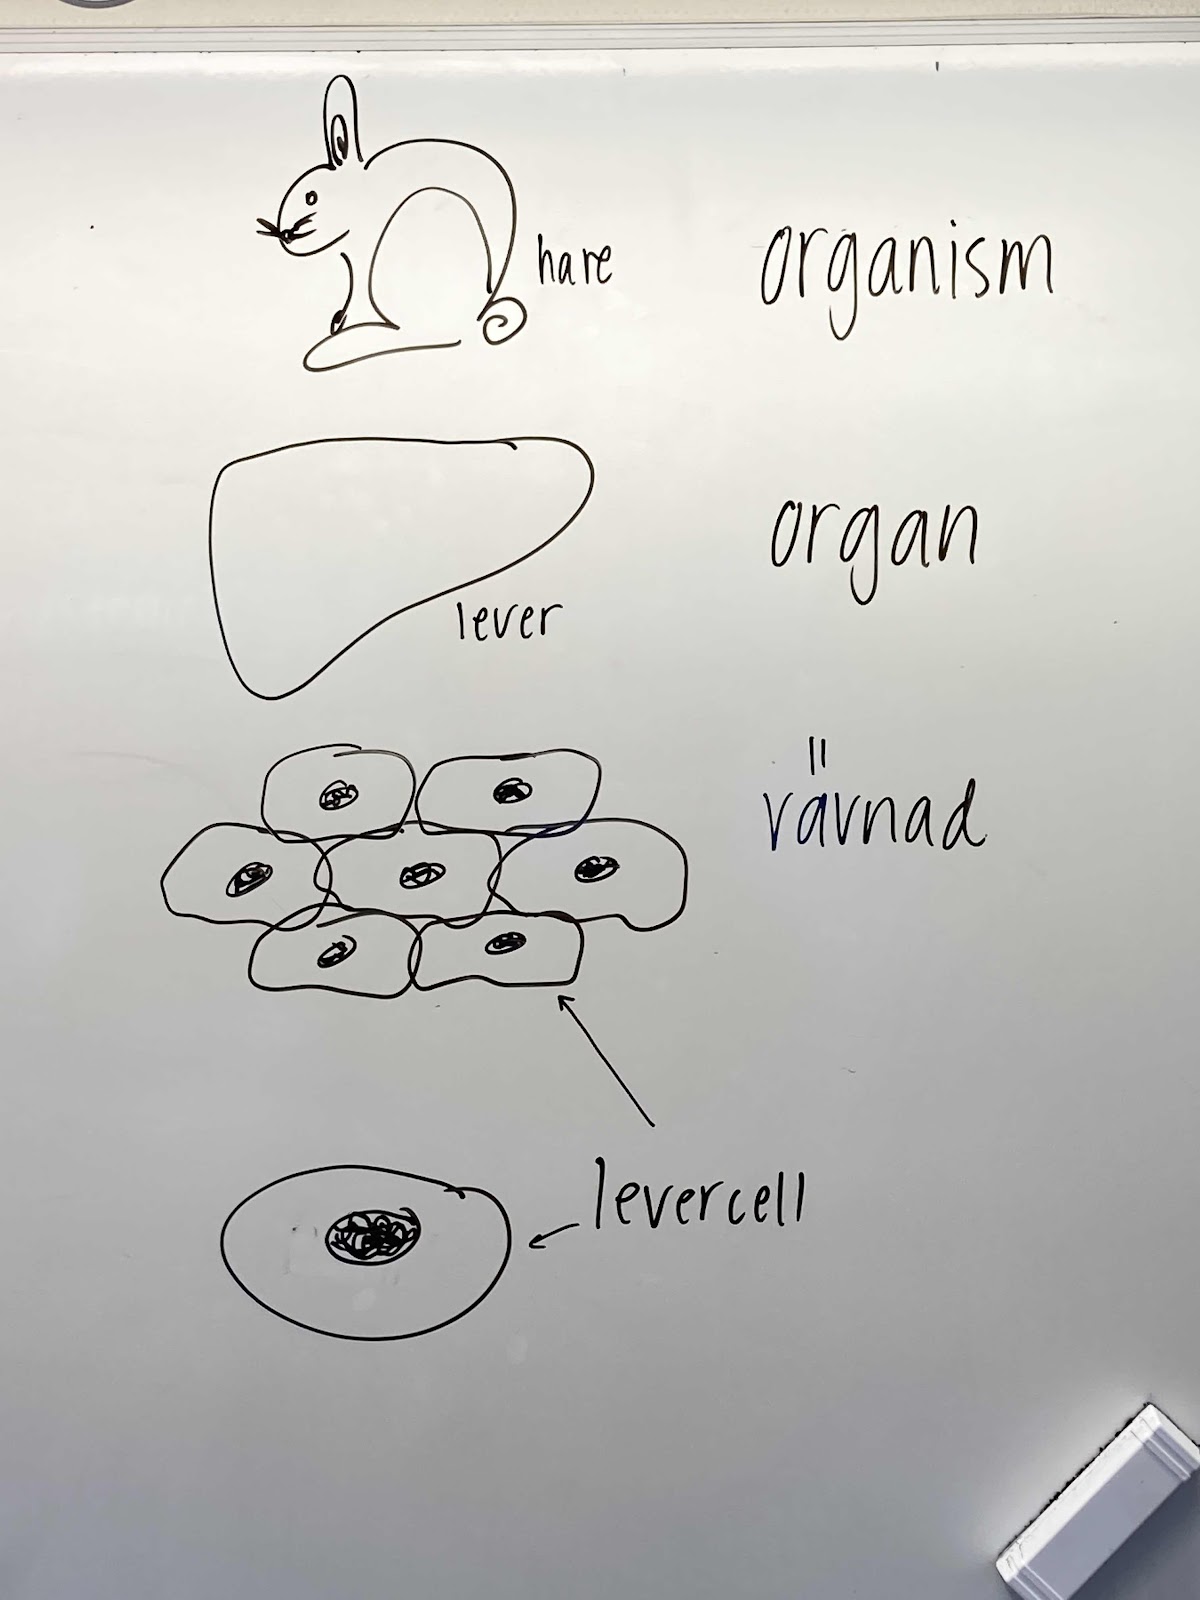 hare
organism
lever
organ
vävnad
levercell